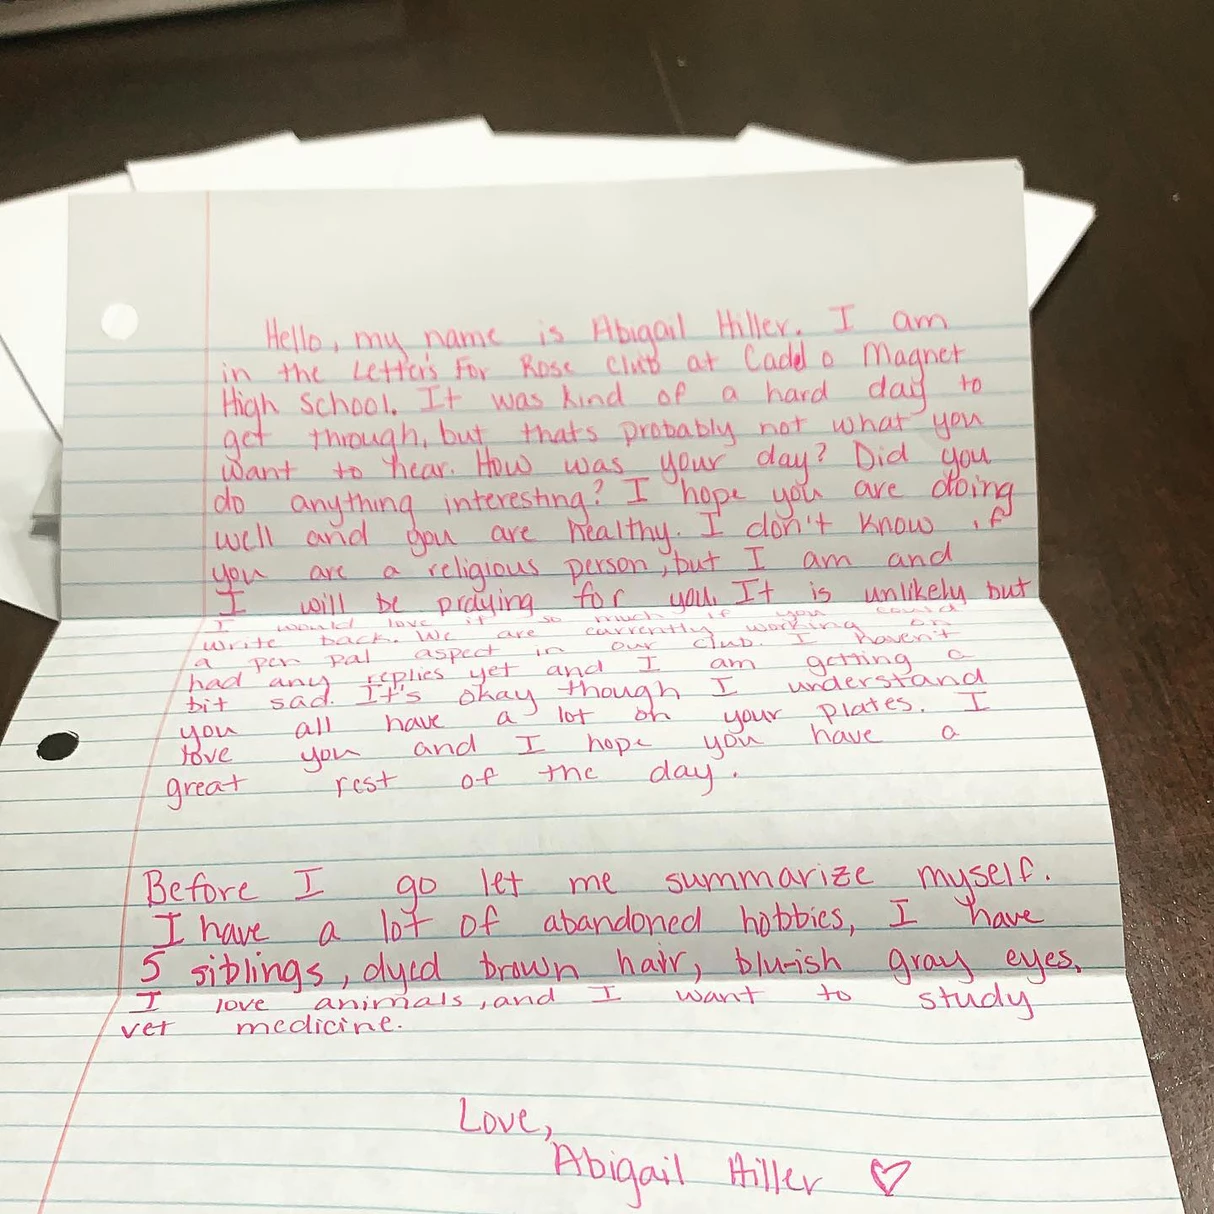 Hello, my name is Abigail Hiller. I am
in the Letters For Rose Club at Caddo Magnet
High School. It was kind of a hard day to
get through, but thats probably not what you
want to hear. How was your day? Did you
do anything interesting? I hope you are doing
well and you are healthy. I don't know if
you are a religious person, but I am and
I will be praying for you. It is unlikely but
I would love it so much if you could
write back. We are currently working on
a pen pal aspect in our club. I haven't
had any replies yet and I am getting a
bit sad. It's okay though I understand
you all have a lot on your plates. I
love you and I hope you have a
great rest of the day.
Before I go let me summarize myself.
I have a lot of abandoned hobbies, I have
5 siblings, dyed brown hair, blu-ish gray eyes.
I love animals, and I want to study
vet medicine.
Love,
Abigail Hiller ♡